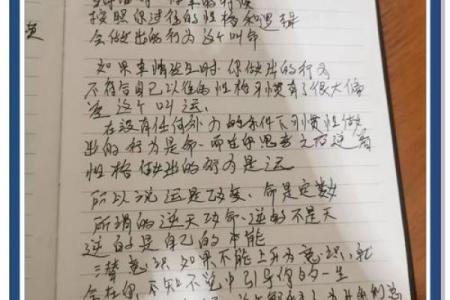 按照你过往的性格和逻辑
会做出的行为这个叫命
如果事情发生时你做出的行为
不符合自己以往的性格习惯有了很大偏
差这个叫运.
在没有任何外力的条件下习惯性做
出的行为是命.而由思考之后逆着
性格做出的行为是运
所以说运是改变,命是定数
所谓的逆天改命.逆的不是天
逆的是自己的本能
潜意识,如果不能上升为意识,就
会在不知不觉中引导你的一生